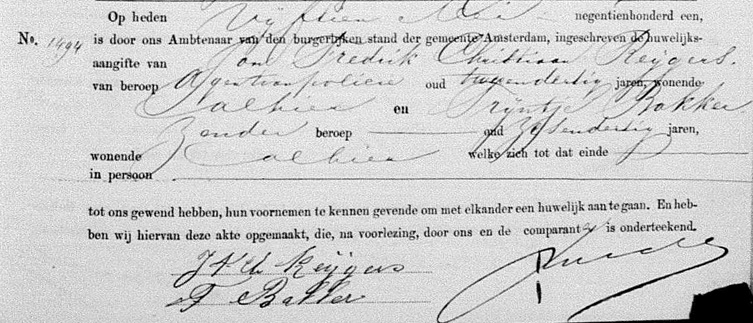 Op heden Vijftien Mei negentienhonderd een,
No. 1494 is door ons Ambtenaar van den burgerlijken stand der gemeente Amsterdam, ingeschreven de huwelijks-
aangifte van Jan Fredrik Christiaan Reijgers.
van beroep Agent van politie oud tweeendertig jaren, wonende
alhier en Trijntje Bakker
Zonder beroep oud zesendertig jaren,
wonende alhier welke zich tot dat einde
in persoon
tot ons gewend hebben, hun voornemen te kennen gevende om met elkander een huwelijk aan te gaan. En heb-
ben wij hiervan deze akte opgemaakt, die, na voorlezing, door ons en de comparanten is onderteekend.
J F Ch Reijgers
T Bakker